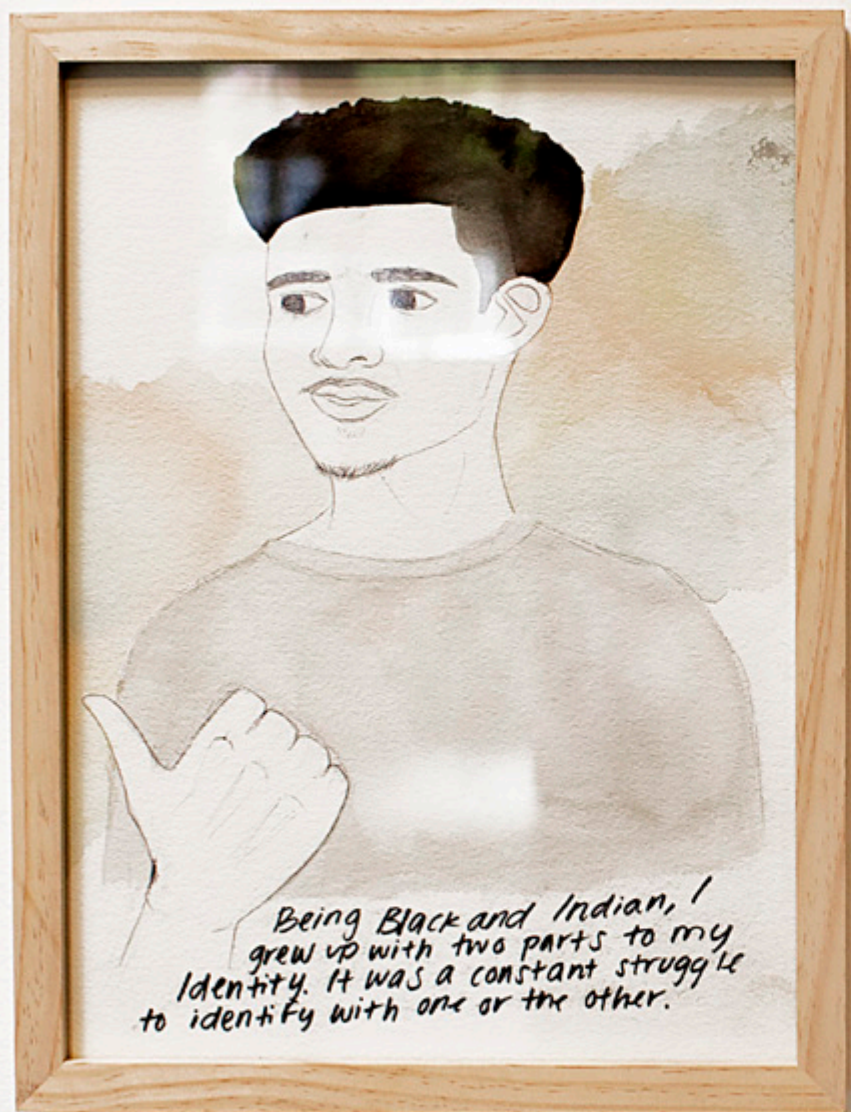 Being Black and Indian, I
grew up with two parts to my
Identity. It was a constant struggle
to identify with one or the other.